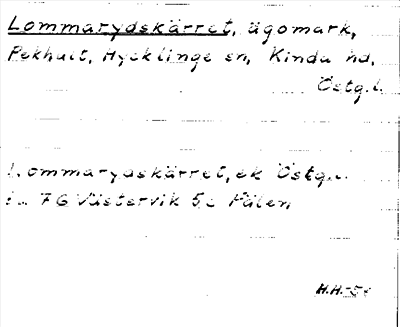 Lommarydskärret, ägomark,
Pekhult, Hycklinge sn, Kinda hd,
Östg.l.
Lommarydskärret, ek Östg.l.
FG Västervik 5c Fälen
H.H.